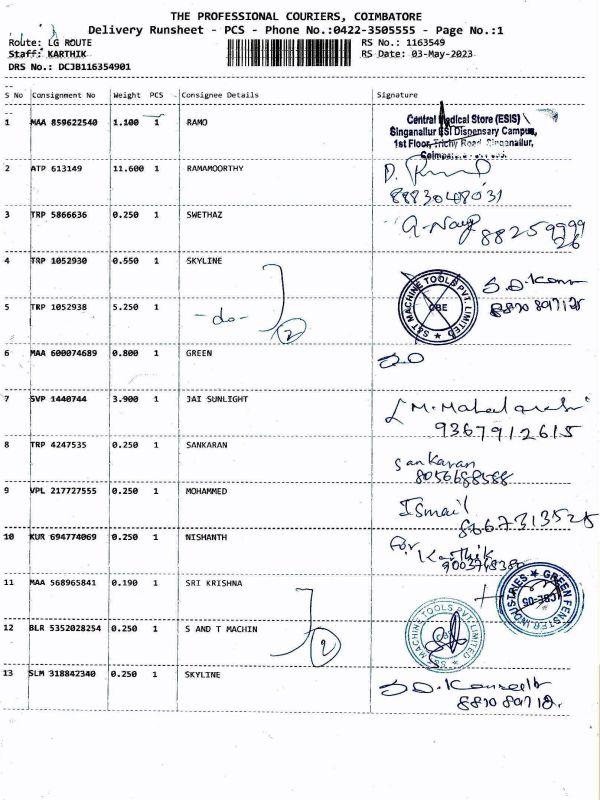 THE PROFESSIONAL COURIERS, COIMBATORE
Delivery Runsheet - PCS - Phone No.:0422-3505555 - Page No.:1
Route: LG ROUTE RS No.: 1163549
Staff: KARTHIK RS Date: 03-May-2023
DRS No.: DCJB116354901
S No Consignment No Weight PCS Consignee Details Signature
1 MAA 859622540 1.100 1 RAMO
Central Medical Store (ESIS)
Singanallur ESI Dispensary Campus,
1st Floor, Trichy Road, Singanallur,
2 ATP 613149 11.600 1 RAMAMOORTHY
8883048031
3 TRP 5866636 0.250 1 SWETHAZ
8825999926
4 TRP 1052930 0.550 1 SKYLINE
S&T MACHINE TOOLS PVT. LIMITED
CBE
5 TRP 1052938 5.250 1 -do- 2
6 MAA 600074689 0.800 1 GREEN
7 SVP 1440744 3.900 1 JAI SUNLIGHT
9367912615
8 TRP 4247535 0.250 1 SANKARAN
Sankaran
8056688588
9 VPL 217727555 0.250 1 MOHAMMED
Ismail
8667313525
10 KUR 694774069 0.250 1 NISHANTH
for Karthik
11 MAA 568965841 0.190 1 SRI KRISHNA
GREEN FENSTER INDUSTRIES
CBE-05
12 BLR 5352028254 0.250 1 S AND T MACHIN 2
S&T MACHINE TOOLS PVT. LIMITED
13 SLM 318842340 0.250 1 SKYLINE